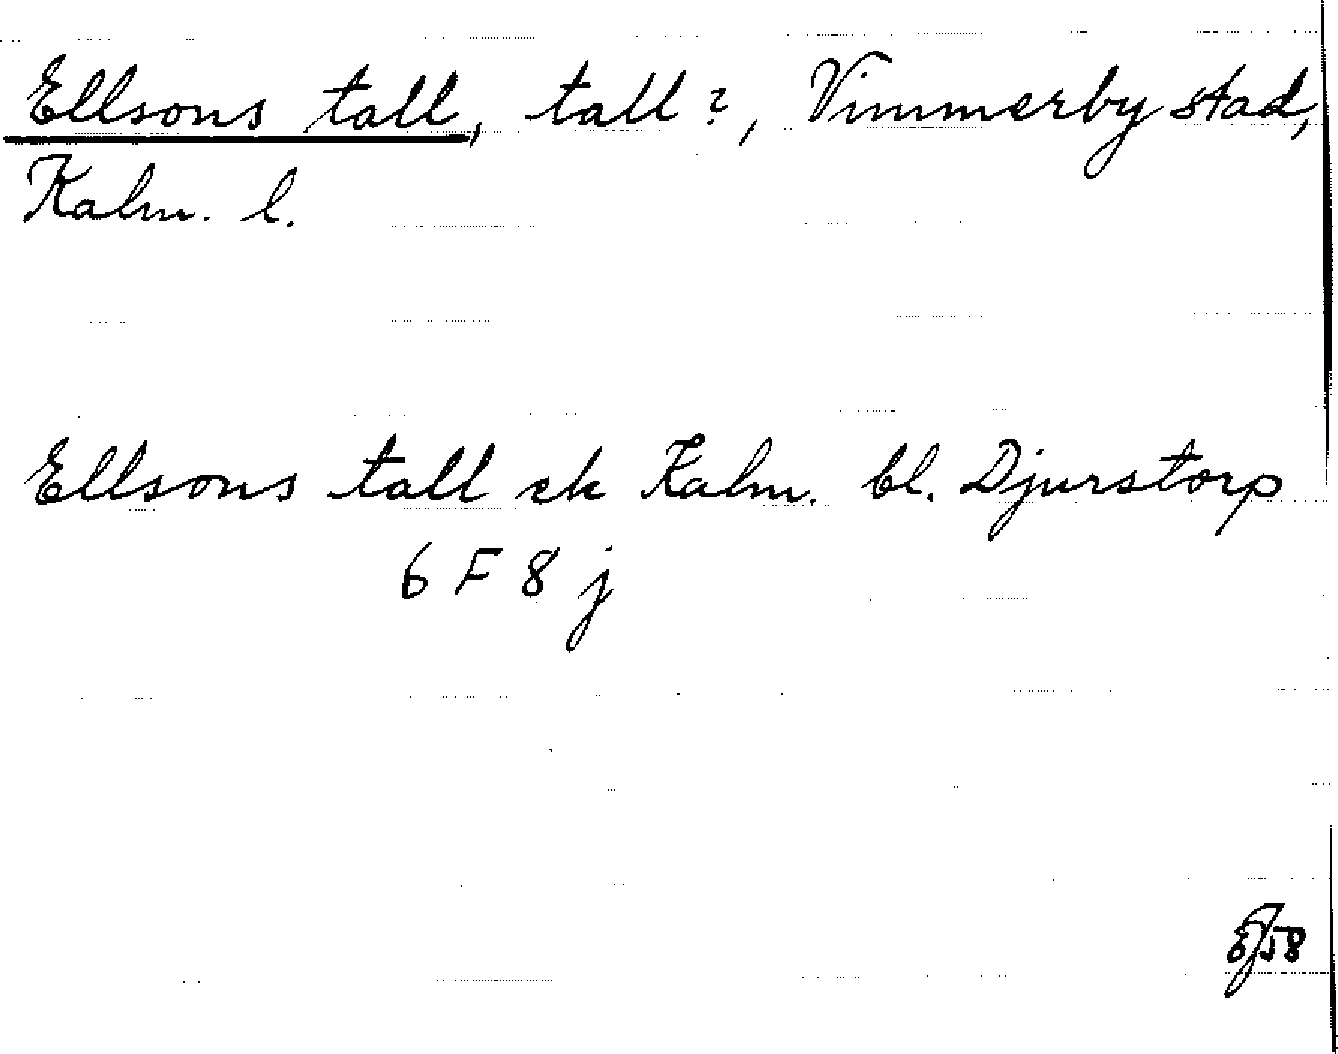 Ellsons tall, tall?, Vimmerby stad,
Kalm. l.
Ellsons tall ek Kalm. bl. Djurstorp
6 F 8 j
58